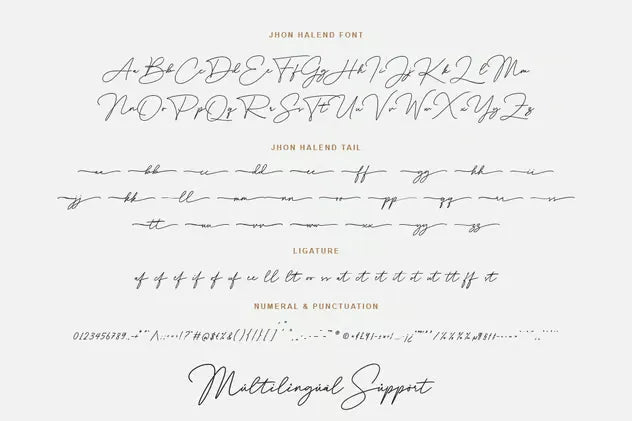 JHON HALEND FONT
Aa Bb Cc Dd Ee Ff Gg Hh Ii Jj Kk Ll Mm
Nn Oo Pp Qq Rr Ss Tt Uu Vv Ww Xx Yy Zz
JHON HALEND TAIL
aa bb cc dd ee ff gg hh ii
jj kk ll mm nn oo pp qq rr ss
tt uu vv ww xx yy zz
LIGATURE
af cf ef if of uf ee ll lt or ss at ct et it ot ut tt ff st
NUMERAL & PUNCTUATION
0123456789
Múltilingüál Süppórt